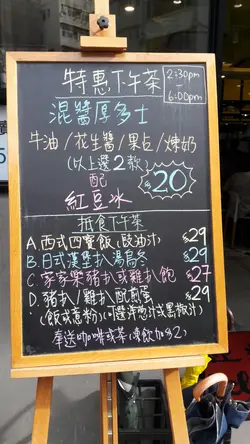 特惠下午茶
2:30pm
–
6:00pm
混醬厚多士
牛油/花生醬/果占/煉奶
(以上選2款)
配
紅豆冰
$20
抵食下午茶
A.西式四寶飯,豉油汁 $29
B.日式漢堡扒湯烏冬 $29
C.家家樂豬扒或雞扒飽 $27
D.豬扒/雞扒配煎蛋 $29
(飯或意粉)(可選洋葱汁或黑椒汁)
奉送咖啡或茶,凍飲加$2